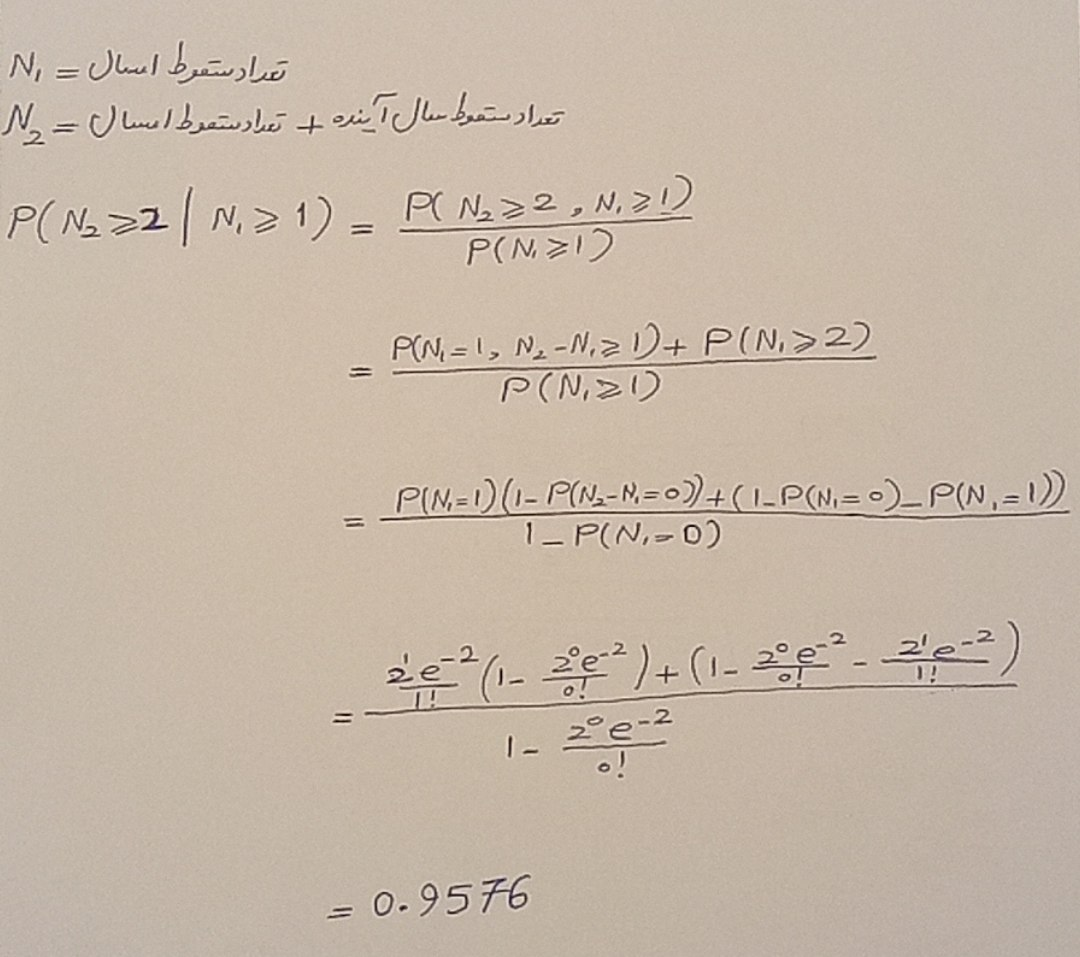 N₁ = تعداد سقوط امسال
N₂ = تعداد سقوط امسال + تعداد سقوط سال آینده
P(N₂ ≥ 2 | N₁ ≥ 1) = P(N₂ ≥ 2, N₁ ≥ 1) / P(N₁ ≥ 1)
= (P(N₁ = 1, N₂ - N₁ ≥ 1) + P(N₁ ≥ 2)) / P(N₁ ≥ 1)
= (P(N₁ = 1)(1 - P(N₂ - N₁ = 0)) + (1 - P(N₁ = 0) - P(N₁ = 1))) / (1 - P(N₁ = 0))
= (2¹e⁻²/1! (1 - 2⁰e⁻²/0!) + (1 - 2⁰e⁻²/0! - 2¹e⁻²/1!)) / (1 - 2⁰e⁻²/0!)
= 0.9576